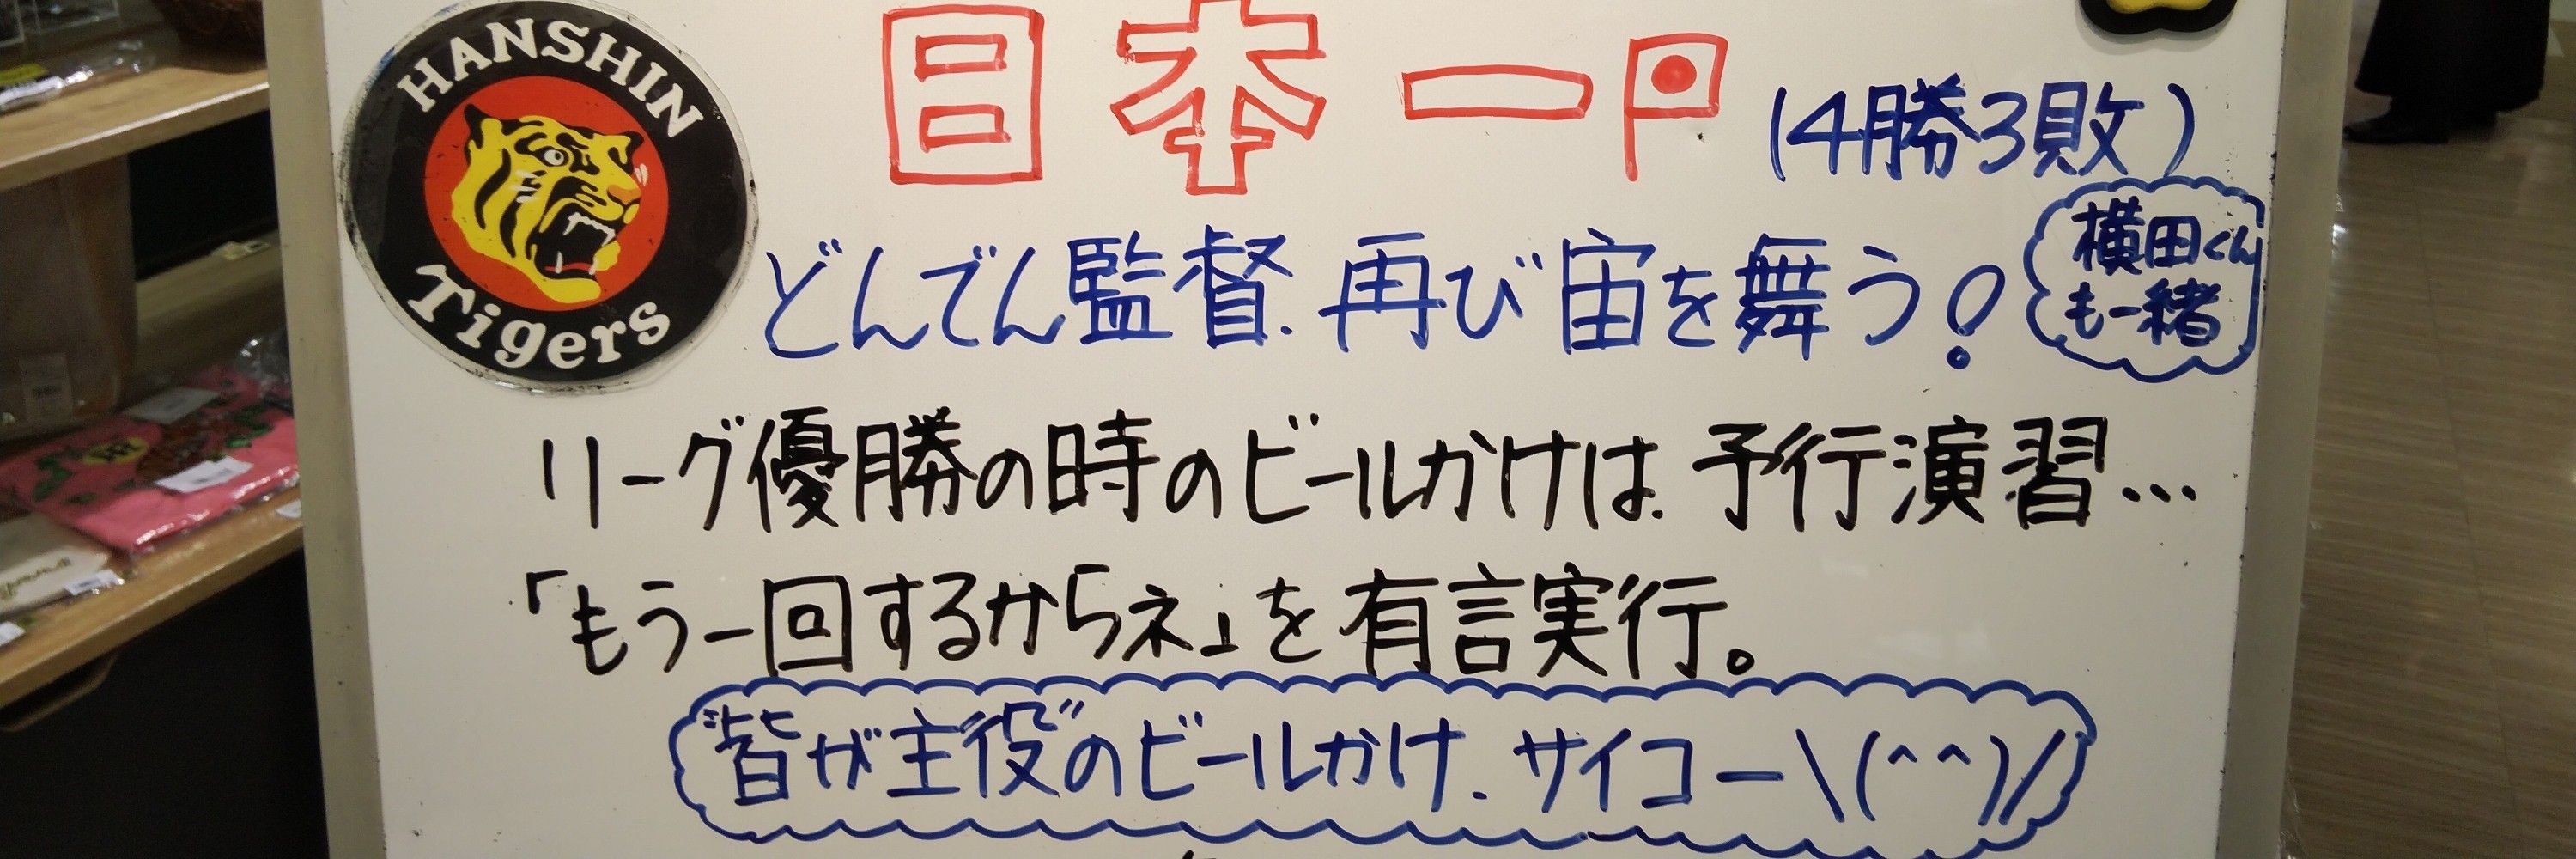 HANSHIN
Tigers
日本一
(4勝3敗)
どんでん監督、再び宙を舞う!
横田くん
も一緒
リーグ優勝の時のビールかけは、予行演習…
「もう一回するからネ」を有言実行。
"皆が主役"のビールかけ、サイコー\(^^)/